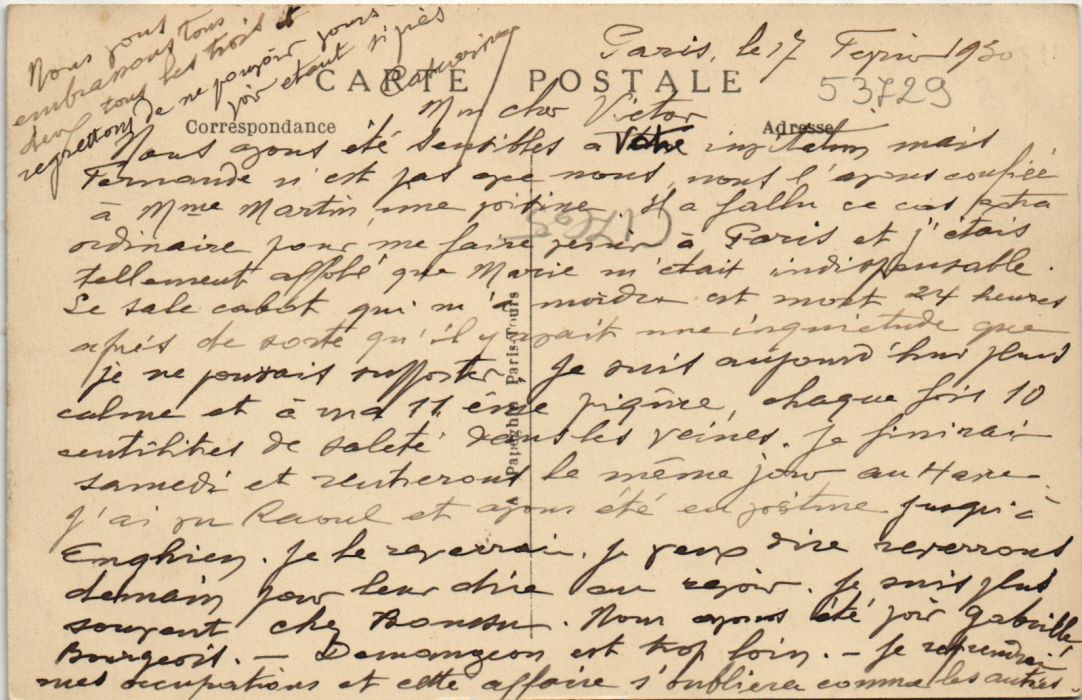 Paris, le 17 Fevrier 1930
CARTE POSTALE
53729
Correspondance
Adresse
Mon cher Victor
Nous avons été sensibles à Votre invitation mais
Fernande n'est pas avec nous, nous l'avons confiée
à Mme Martin, une voisine. Il a fallu ce cas extra
ordinaire pour me faire venir à Paris et j'étais
tellement affolé que Marie m'était indispensable.
Le sale cabot qui m'a mordu est mort 24 heures
après de sorte qu'il y avait une inquiétude que
je ne pouvais supporter. Je suis aujourd'hui plus
calme et à ma 11 ème piqûre, chaque fois 10
centilitres de saleté dans les veines. Je finirai
samedi et rentrerons le même jour au Havre.
J'ai vu Raoul et avons été en voiture jusqu'à
Enghien. Je le reverrai. Je veux dire reverrons
demain pour leur dire au revoir. Je suis plus
souvent chez. Nous avons été voir Gabrielle
Bourgeois. — Demangeon est trop loin. — Je reprendrai
mes occupations et cette affaire s'oubliera comme les autres.
Nous vous
embrassons tous
deux tous les trois et
regrettons de ne pouvoir vous
voir étant si près
A. Papeghin Paris-Tours